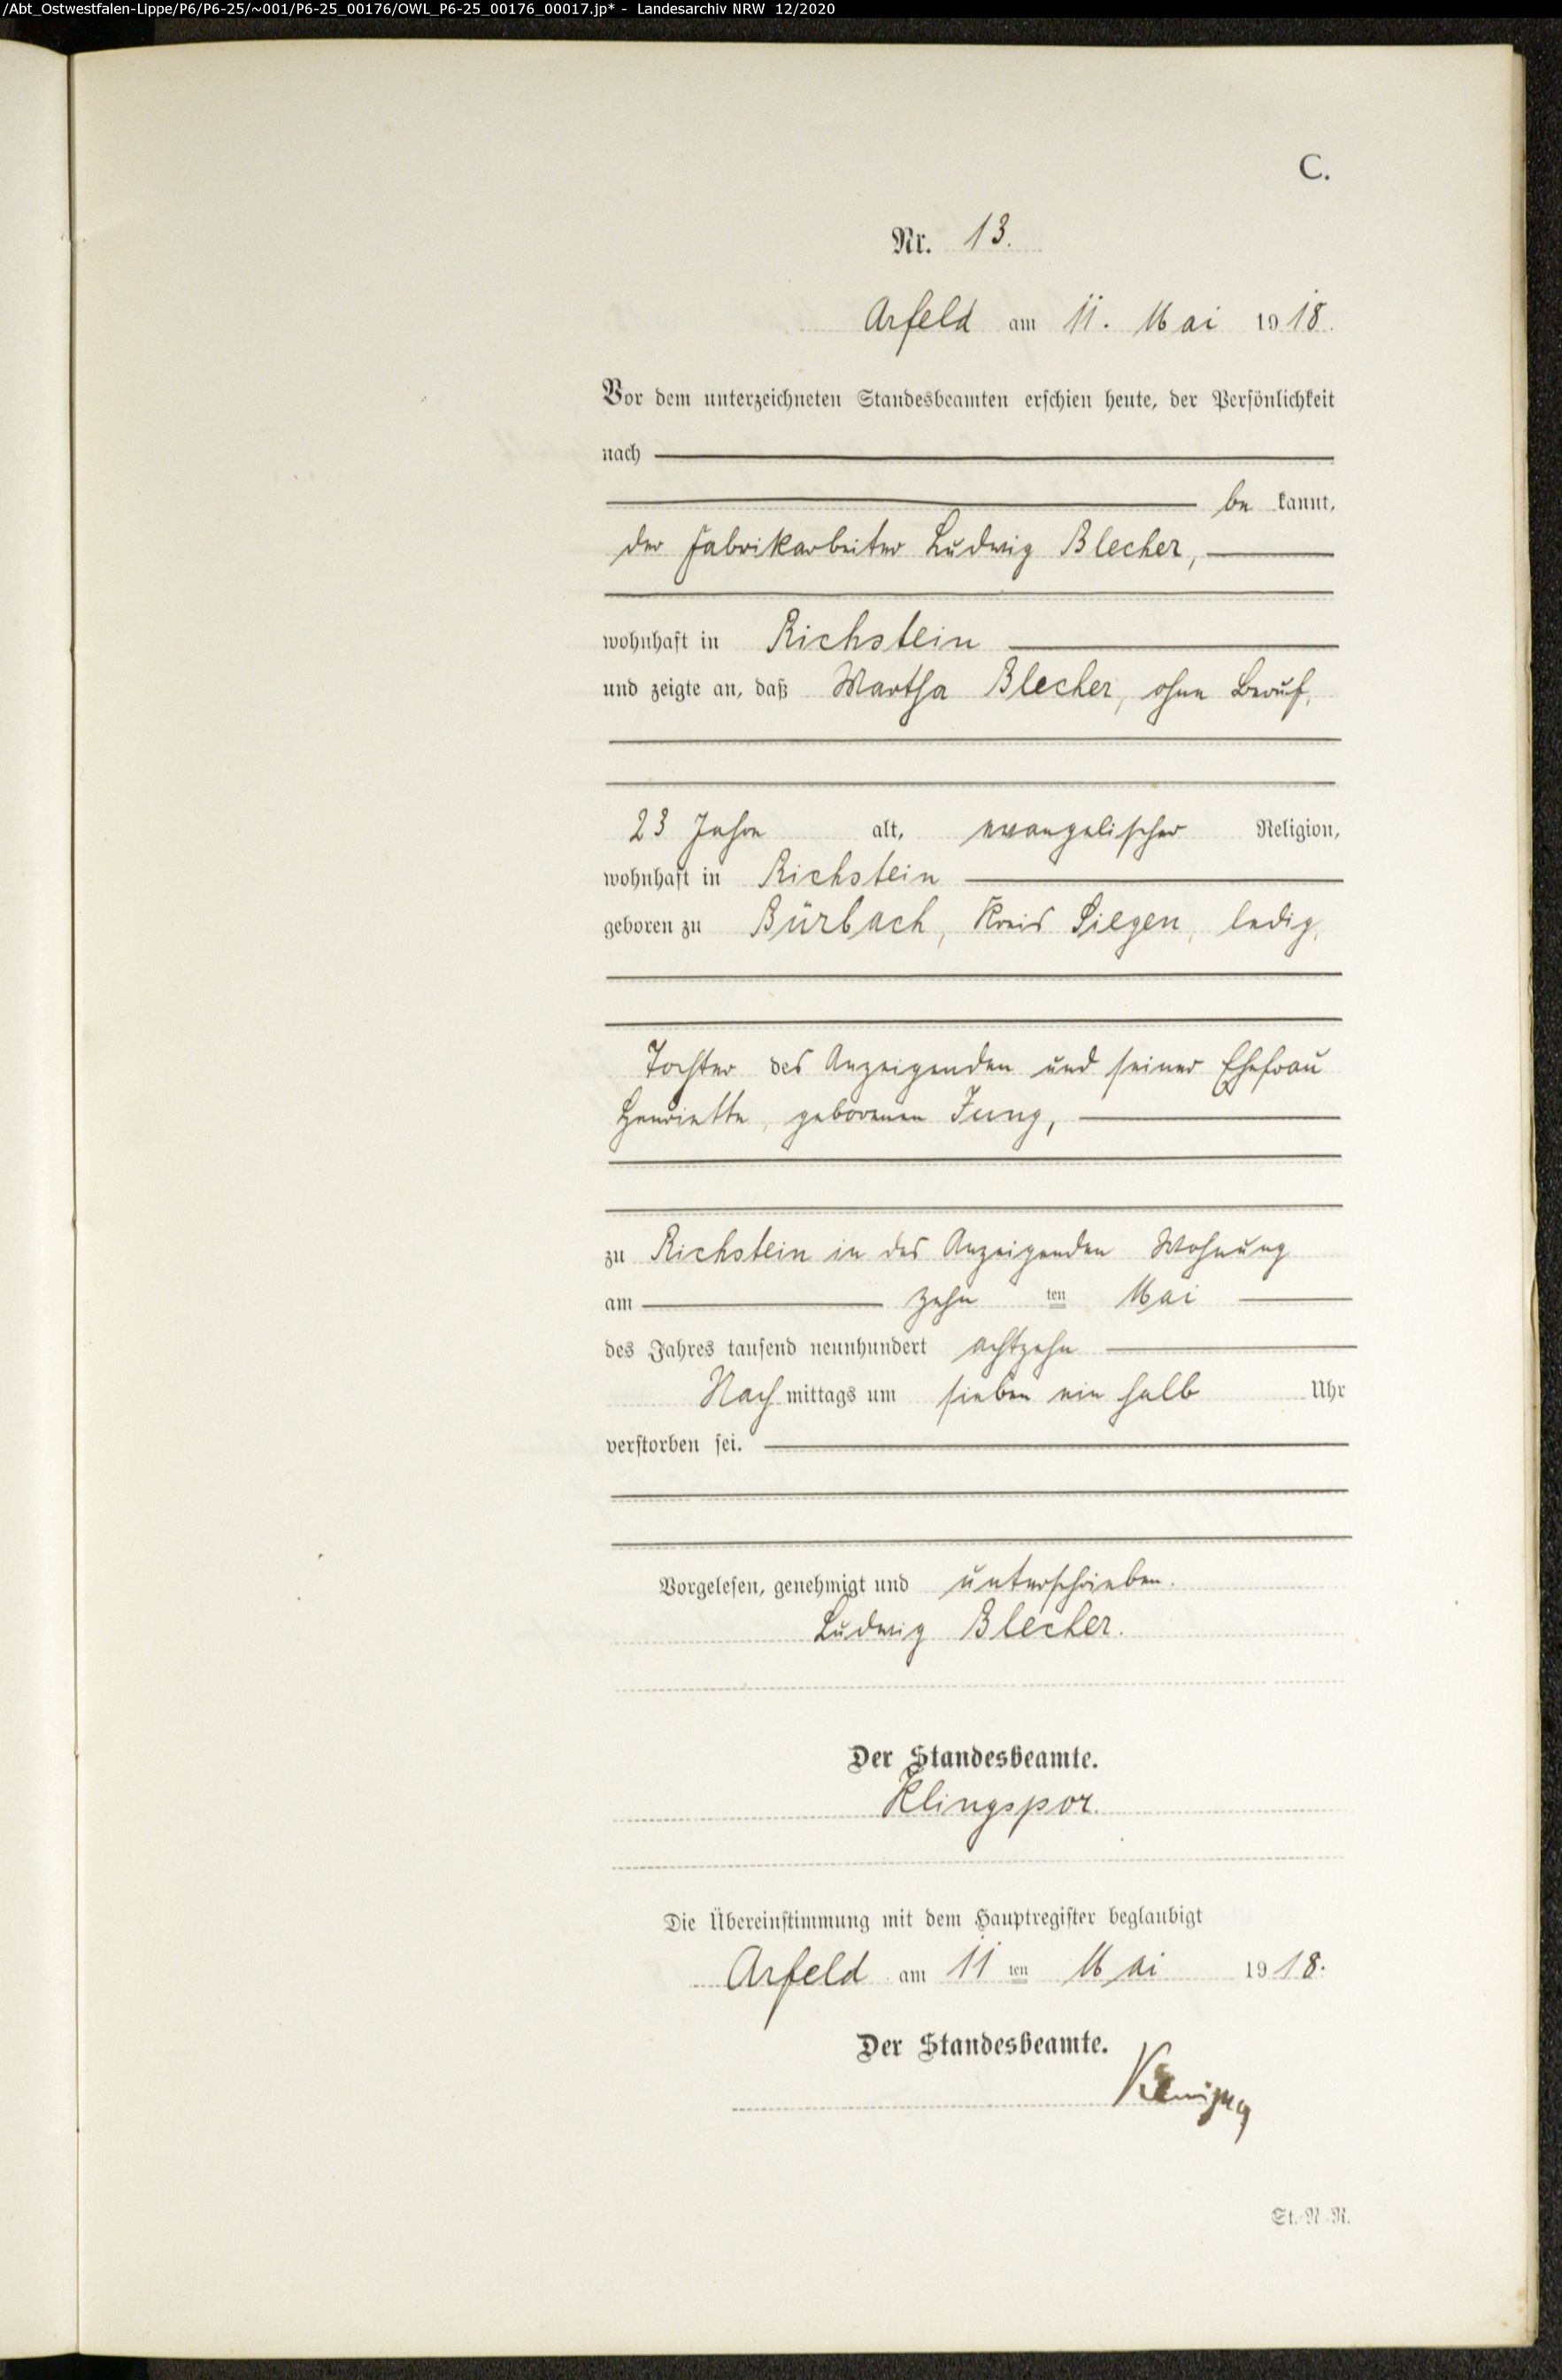 /Abt_Ostwestfalen-Lippe/P6/P6-25/~001/P6-25_00176/OWL_P6-25_00176_00017.jp* - Landesarchiv NRW 12/2020
C.
Nr. 13.
Arfeld am 11. Mai 1918.
Vor dem unterzeichneten Standesbeamten erschien heute, der Persönlichkeit
nach
be kannt,
der Fabrikarbeiter Ludwig Blecher,
wohnhaft in Richstein
und zeigte an, daß Martha Blecher, ohne Beruf,
23 Jahre alt, evangelischer Religion,
wohnhaft in Richstein
geboren zu Bürbach, Kreis Siegen, ledig,
Tochter des Anzeigenden und seiner Ehefrau
Henriette, geborenen Jung,
zu Richstein in des Anzeigenden Wohnung
am zehn ten Mai
des Jahres tausend neunhundert achtzehn
Nach mittags um sieben ein halb Uhr
verstorben sei.
Vorgelesen, genehmigt und unterschrieben.
Ludwig Blecher.
Der Standesbeamte.
Klingspor.
Die Übereinstimmung mit dem Hauptregister beglaubigt
Arfeld am 11 ten Mai 1918.
Der Standesbeamte.
St.-N.-R.